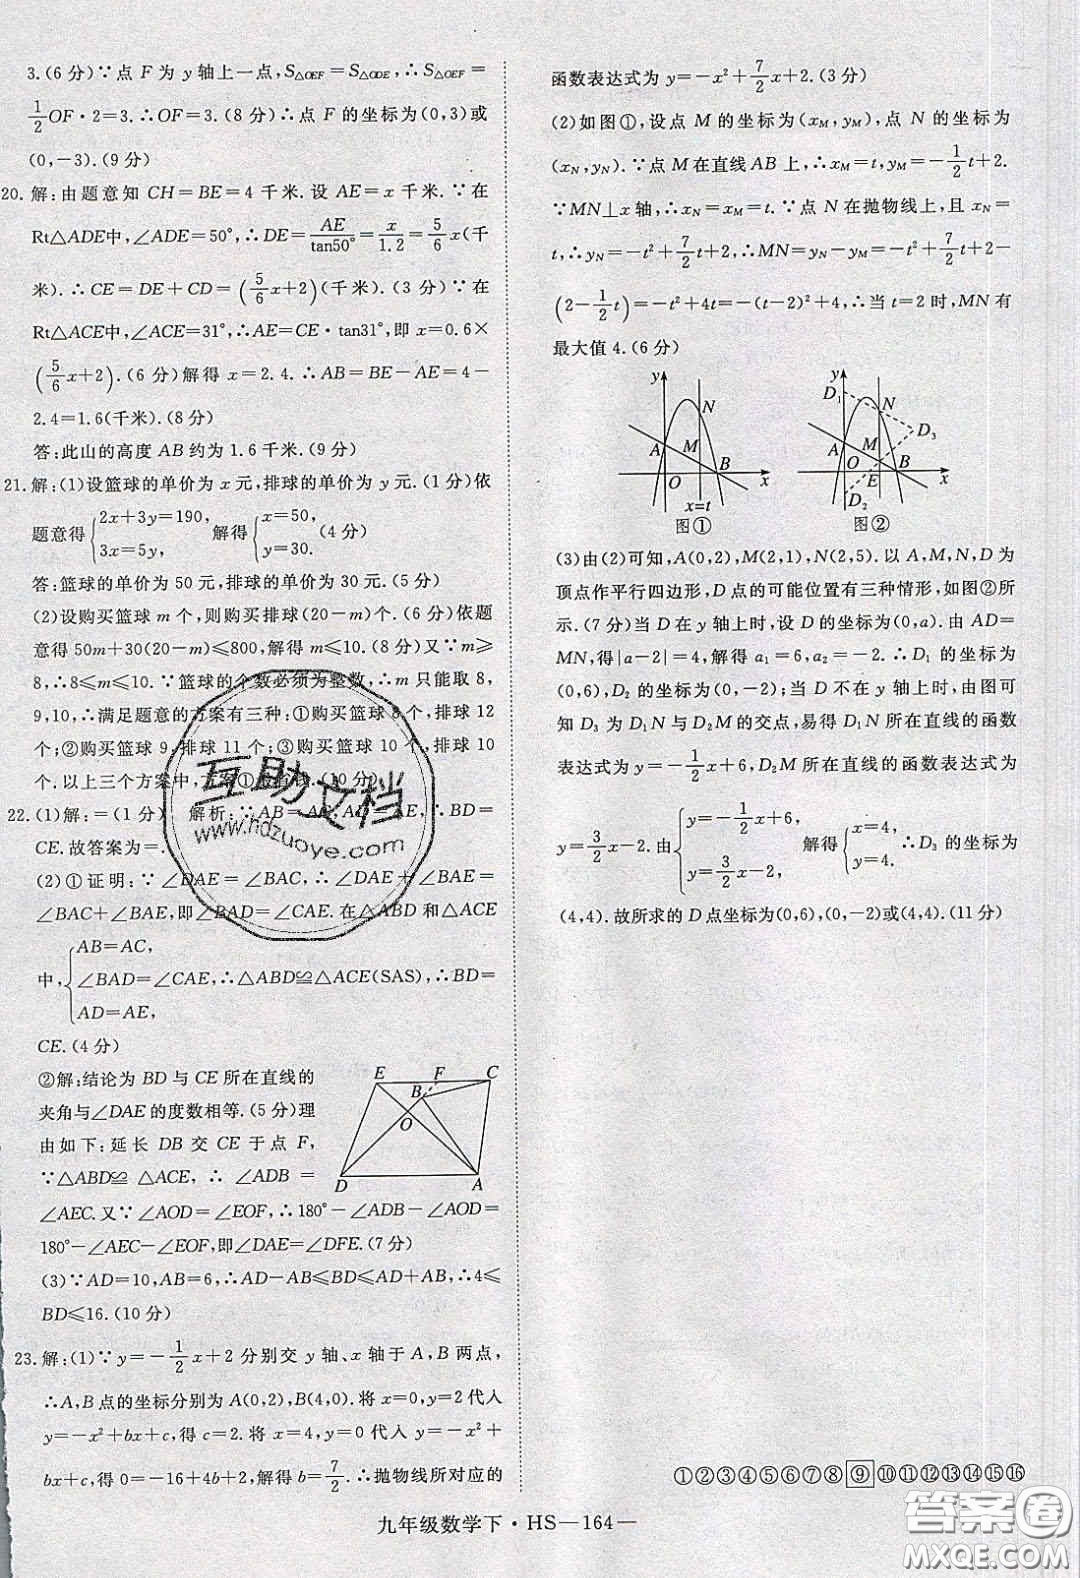 3.(6分)∵点 F 为 y 轴上一点,S△OEF=S△ODE,∴S△OEF=
1/2 OF·2=3.∴OF=3.(8分)∴点 F 的坐标为(0,3)或
(0,-3).(9分)
20.解:由题意知 CH=BE=4 千米.设 AE=x 千米.∵在
Rt△ADE中,∠ADE=50°,∴DE=AE/tan50°=x/1.2=5/6 x(千
米).∴CE=DE+CD=(5/6 x+2)(千米).(3分)∵在
Rt△ACE中,∠ACE=31°,∴AE=CE·tan31°,即 x=0.6×
(5/6 x+2).(6分)解得 x=2.4.∴AB=BE-AE=4-
2.4=1.6(千米).(8分)
答:此山的高度 AB 约为 1.6 千米.(9分)
21.解:(1)设篮球的单价为 x 元,排球的单价为 y 元.(1分)依
题意得{2x+3y=190, 3x=5y, 解得{x=50, y=30. (4分)
答:篮球的单价为 50 元,排球的单价为 30 元.(5分)
(2)设购买篮球 m 个,则购买排球(20-m)个.(6分)依题
意得 50m+30(20-m)≤800,解得 m≤10.(8分)又∵m≥
8,∴8≤m≤10.∵篮球的个数必须为整数,∴m 只能取 8,
9,10,∴满足题意的方案有三种:①购买篮球 8 个,排球 12
个;②购买篮球 9,排球 11 个;③购买篮球 10 个,排球 10
个.以上三个方案中,方案①最省钱.(10分)
22.(1)解:=(1分) 解析:∵AB=AC,AD=AE,∴BD=
CE.故答案为=.
(2)①证明:∵∠DAE=∠BAC,∴∠DAE+∠BAE=
∠BAC+∠BAE,即∠BAD=∠CAE.在△ABD 和△ACE
中,{AB=AC, ∠BAD=∠CAE, AD=AE, ∴△ABD≌△ACE(SAS),∴BD=
CE.(4分)
②解:结论为 BD 与 CE 所在直线的
夹角与∠DAE 的度数相等.(5分)理
由如下:延长 DB 交 CE 于点 F,
∵△ABD≌△ACE,∴∠ADB=
∠AEC.又∵∠AOD=∠EOF,∴180°-∠ADB-∠AOD=
180°-∠AEC-∠EOF,即∠DAE=∠DFE.(7分)
E F C
B
O
D A
(3)∵AD=10,AB=6,∴AD-AB≤BD≤AD+AB,∴4≤
BD≤16.(10分)
23.解:(1)∵y=-1/2 x+2 分别交 y 轴、x 轴于 A,B 两点,
∴A,B 点的坐标分别为 A(0,2),B(4,0).将 x=0,y=2 代入
y=-x²+bx+c,得 c=2.将 x=4,y=0 代入 y=-x²+
bx+c,得 0=-16+4b+2,解得 b=7/2.∴抛物线所对应的
函数表达式为 y=-x²+7/2 x+2.(3分)
(2)如图①,设点 M 的坐标为(xM,yM),点 N 的坐标为
(xN,yN).∵点 M 在直线 AB 上,∴xM=t,yM=-1/2 t+2.
∵MN⊥x 轴,∴xN=xM=t.∵点 N 在抛物线上,且 xN=
t,∴yN=-t²+7/2 t+2,∴MN=yN-yM=-t²+7/2 t+2-
(2-1/2 t)=-t²+4t=-(t-2)²+4,∴当 t=2 时,MN 有
最大值 4.(6分)
y N A M O B x x=t
图①
y D1 N D3 A M O E B x D2
图②
(3)由(2)可知,A(0,2),M(2,1),N(2,5).以 A,M,N,D 为
顶点作平行四边形,D 点的可能位置有三种情形,如图②所
示.(7分)当 D 在 y 轴上时,设 D 的坐标为(0,a).由 AD=
MN,得|a-2|=4,解得 a1=6,a2=-2.∴D1 的坐标为
(0,6),D2 的坐标为(0,-2);当 D 不在 y 轴上时,由图可
知 D3 为 D1N 与 D2M 的交点,易得 D1N 所在直线的函数
表达式为 y=-1/2 x+6,D2M 所在直线的函数表达式为
y=3/2 x-2.由{y=-1/2 x+6, y=3/2 x-2, 解得{x=4, y=4. ∴D3 的坐标为
(4,4).故所求的 D 点坐标为(0,6),(0,-2)或(4,4).(11分)
①②③④⑤⑥⑦⑧⑨⑩⑪⑫⑬⑭⑮⑯
九年级数学下·HS—164—
互助文档
www.hdzuoye.com
答案圈
MXQE.COM